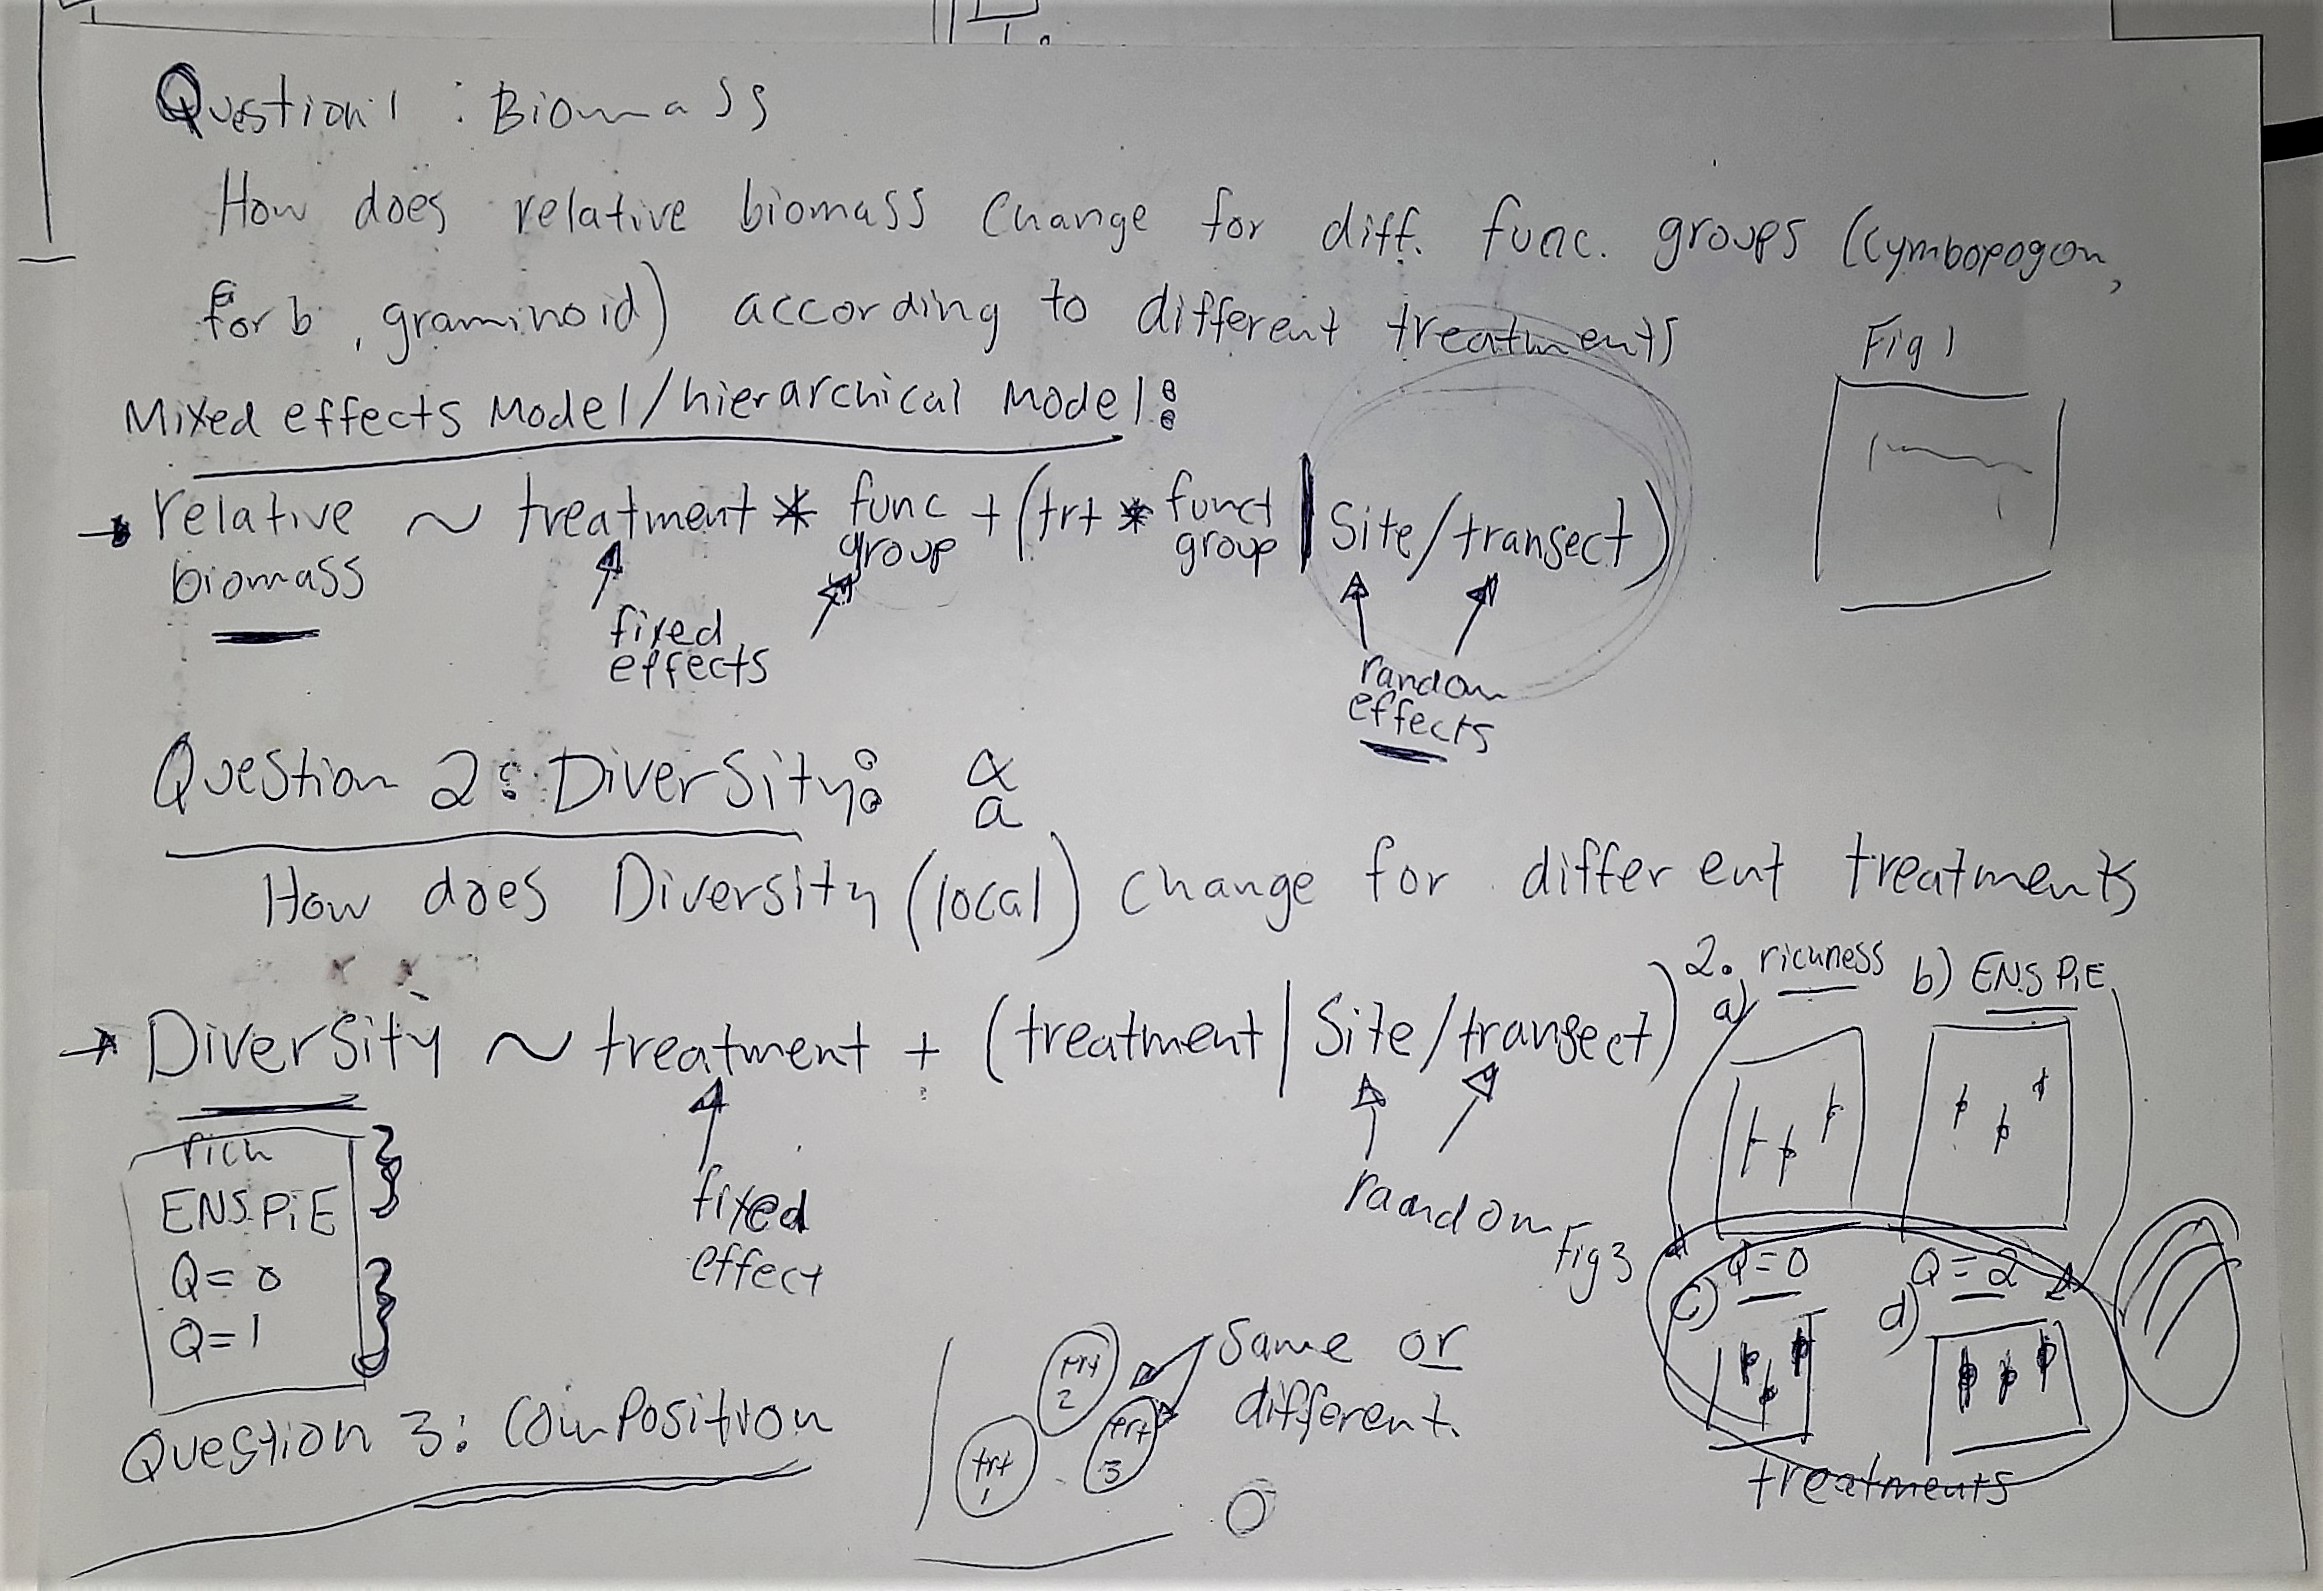 Question 1 : Biomass
How does relative biomass change for diff. func. groups (Cymbopogon,
forb, graminoid) according to different treatments
Fig 1
Mixed effects Model/hierarchical Model:
→ relative biomass ~ treatment * func group + (trt * funct group | Site/transect)
fixed effects
random effects
Question 2: Diversity: α
a
How does Diversity (local) change for different treatments
→ Diversity ~ treatment + (treatment | Site/transect)
2. richness
a)
b) ENSPiE
rich
ENSPiE
Q= 0
Q=1
fixed
effect
raandom
Fig 3
Q=0
c)
Q=2
d)
treatments
Question 3: Composition
trt
1
trt
2
trt
3
Same or
different.